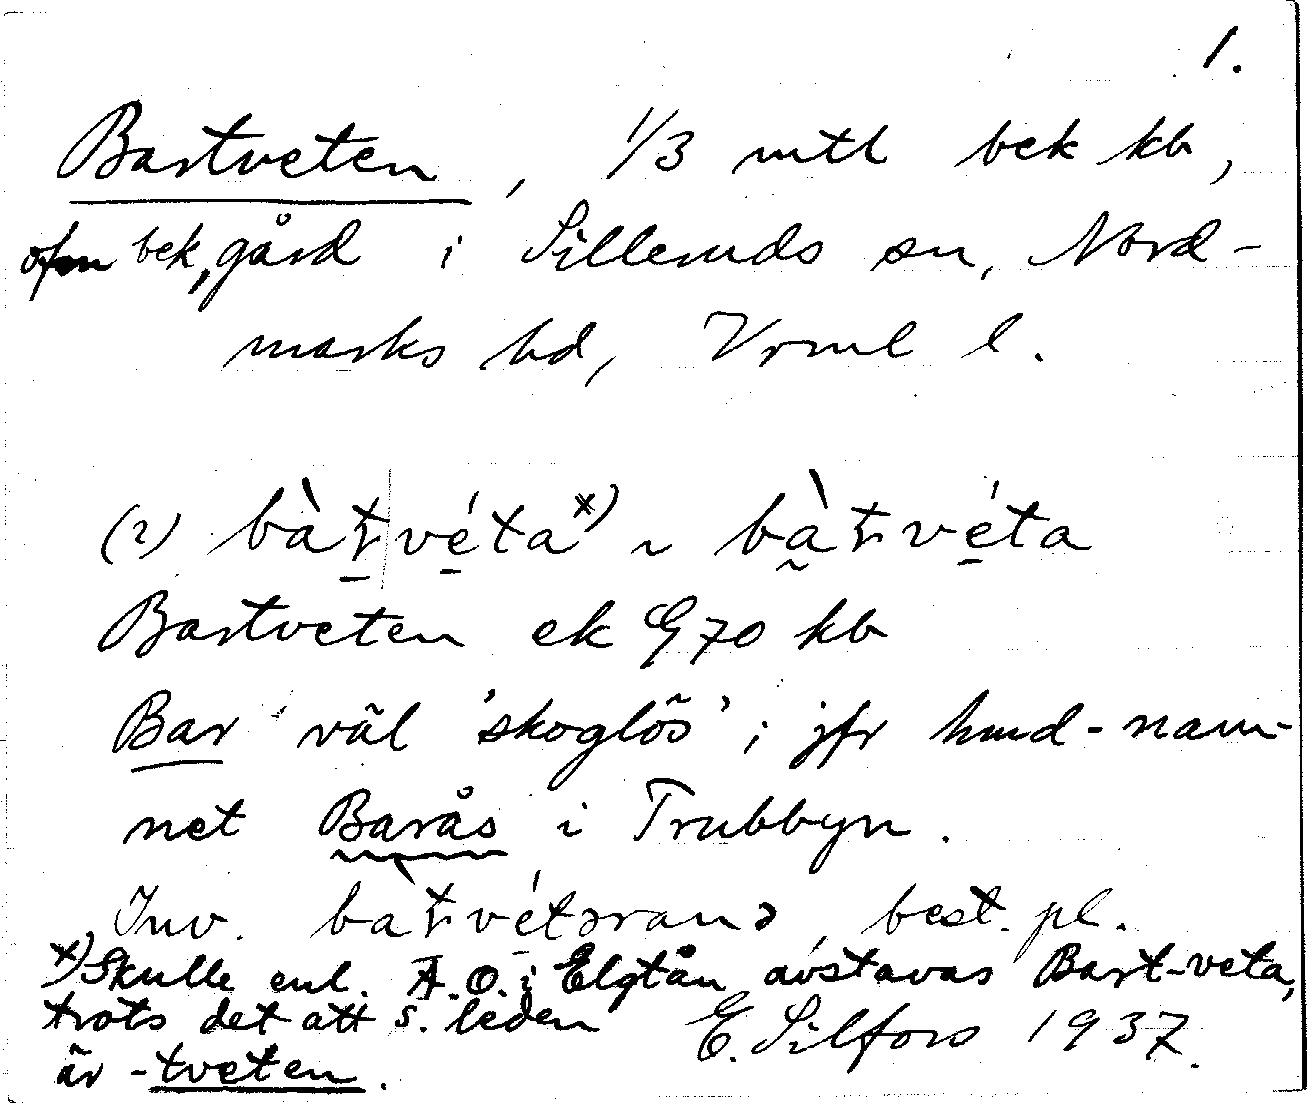 1.
Bartveten, 1/3 mtl bek kb,
ofvan bek, gård i Silleruds sn, Nord-
marks hd, Vrml l.
(2) bàt̠véta x) ~ bàtvéta
Bartveten ek G 70 kb
Bar väl 'skoglös'; jfr hmd-nam-
net Barås i Trubbyn.
Inv. bàtvétərana, best. pl.
x) Skulle enl. A.O. i Elgtån avstavas Bart-veta,
trots det att s. leden
är -tveten.
E. Silfors 1937.